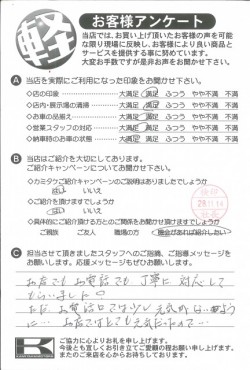 軽
お客様アンケート
当店では、お買い上げ頂いたお客様の声を可能
な限り現場に反映し、お客様により良い商品と
サービスを提供する事に努めています。
大変お手数ですが是非お声をお聞かせ下さい。
A 当店を実際にご利用になった印象をお聞かせ下さい。
◇店の印象 大満足 満足 ふつう やや不満 不満
◇店内・展示場の清掃 大満足 満足 ふつう やや不満 不満
◇お車の品揃え 大満足 満足 ふつう やや不満 不満
◇営業スタッフの対応 大満足 満足 ふつう やや不満 不満
◇納車時のお車の状態 大満足 満足 ふつう やや不満 不満
B 当店はご紹介を大切にしております。
ご紹介キャンペーンについてお聞かせ下さい。
◇カミタケご紹介キャンペーンのご説明はありましたでしょうか
はい いいえ
◇ご紹介を頂けますでしょうか
はい いいえ
◇具体的にご紹介頂ける方とのご関係をお聞かせ頂けますでしょうか
ご親族 ご友人 職場の方 機会があれば紹介したい
C 担当させて頂きましたスタッフへのご指摘、ご指導メッセージを
お願いします。応援メッセージもぜひお願いします。
お店でもお電話でも丁寧に対応して
もらいました。
ただ、お電話口では少し元気がないのように…
お店ではとても元気だったので…
K
ご協力に心よりお礼を申し上げます。
今後とも宜しくお引き立てご愛顧の程お願い申し上げます。
またのご来店を心からお待ちしております。